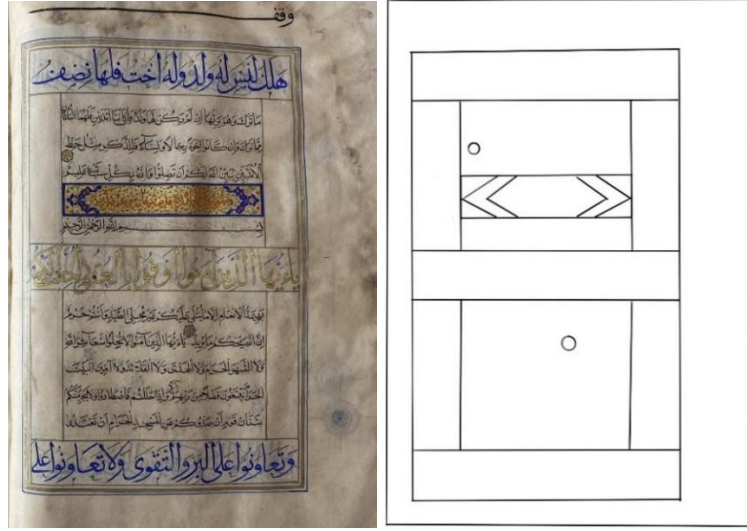 وقف
هلك ليس له ولد وله اخت فلها نصف
ما ترك وهو يرثها ان لم يكن لها ولد فان كانتا اثنتين فلهما الثلثان
مما ترك وان كانوا اخوة رجالا ونساء فللذكر مثل حظ
الانثيين يبين الله لكم ان تضلوا والله بكل شيء عليم
بسم الله الرحمن الرحيم
يا ايها الذين آمنوا اوفوا بالعقود احلت لكم
بهيمة الانعام الا ما يتلى عليكم غير محلي الصيد وانتم حرم
ان الله يحكم ما يريد يا ايها الذين آمنوا لا تحلوا شعائر الله
ولا الشهر الحرام ولا الهدي ولا القلائد ولا آمين البيت
الحرام يبتغون فضلا من ربهم ورضوانا واذا حللتم فاصطادوا ولا يجرمنكم
شنآن قوم ان صدوكم عن المسجد الحرام ان تعتدوا
وتعاونوا على البر والتقوى ولا تعاونوا على